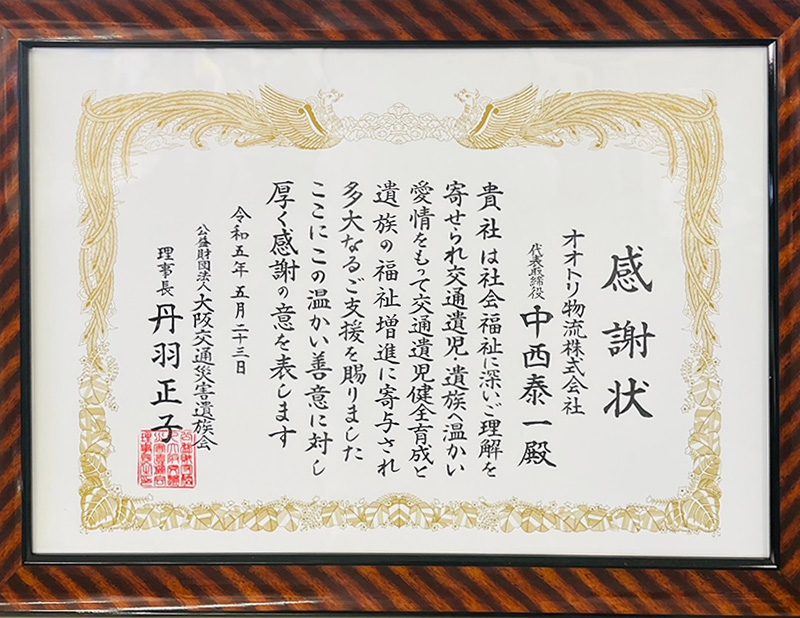 感謝状
オオトリ物流株式会社
代表取締役 中西泰一殿
貴社は社会福祉に深いご理解を
寄せられ交通遺児・遺族へ温かい
愛情をもって交通遺児健全育成と
遺族の福祉増進に寄与され
多大なるご支援を賜りました
ここにこの温かい善意に対し
厚く感謝の意を表します
令和五年五月二十三日
公益財団法人大阪交通災害遺族会
理事長 丹羽正子